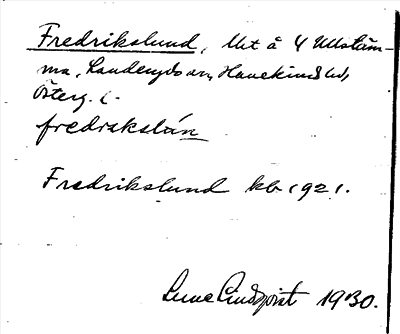 Fredrikslund, Utt å 4 Ullstäm-
ma, Landeryds sn, Hanekinds hd,
Österg. l.
fredrakslún
Fredrikslund kb 1921.
Sune Lindqvist 1930.